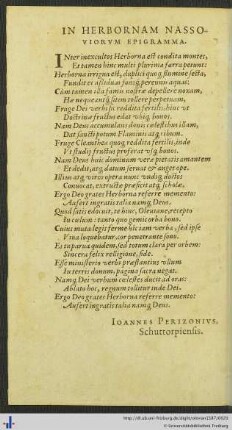 IN HERBORNAM NASSO-
VIORVM EPIGRAMMA.
INter inexcultos Herborna est condita montes,
Et tamen hinc multi plurima farra petunt:
Herborna irrigua est, duplici quoq flumine secta,
Fundit et assiduas fonsq perennis aquas:
Cum tamen illa famem nostram depellere novam,
Hæ neque sitim tollere perpetuam,
Fruge Dei verbi fit reddita fertilis,
Doctrinæ fructus edat ubiq bonos.
Nam Deus accumulans donis cælestibus illam,
Dat sancti potum Flaminis atq cibum.
Fruge Cleanthea quoq reddita fertilis, inde
Vt studii fructus proferat usq bonos.
Nam Deus huic dominum vera pietatis amantem
Et dedit, atq datum servat & auget ope.
Illius atq viros opera nunc undiq doctos
Convocat, exstructæ præficit atq scholæ.
Ergo Deo grates Herborna referre memento:
Aufert ingratis talia namq Deus.
Quod satis edocuit, te huic,
In cultum: tanto quo gemis orba bono.
Cuius muta legit ferme verba, sed ipse
Viva loquebatur, cor penetrante sono.
Es tu parva quidem, sed totum clara per orbem:
Sincera felix relligione, fide.
Esse ministerio verbi præstantius ullum
In terris donum, pagina sacra negat.
Namq Dei verbum cælestes ducit ad oras:
Ablato hoc, regnum tollitur inde Dei.
Ergo Deo grates Herborna referre memento:
Aufert ingratis talia namq Deus.
IOANNES PERIZONIVS,
Schuttorpiensis.
© Universitätsbibliothek Freiburg